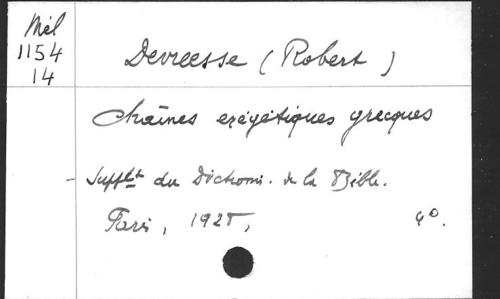 Mél
1154
14
Devreesse (Robert)
Chaînes exégétiques grecques
Supplt du Dictionn. de la Bible.
Paris, 1928, 4º.